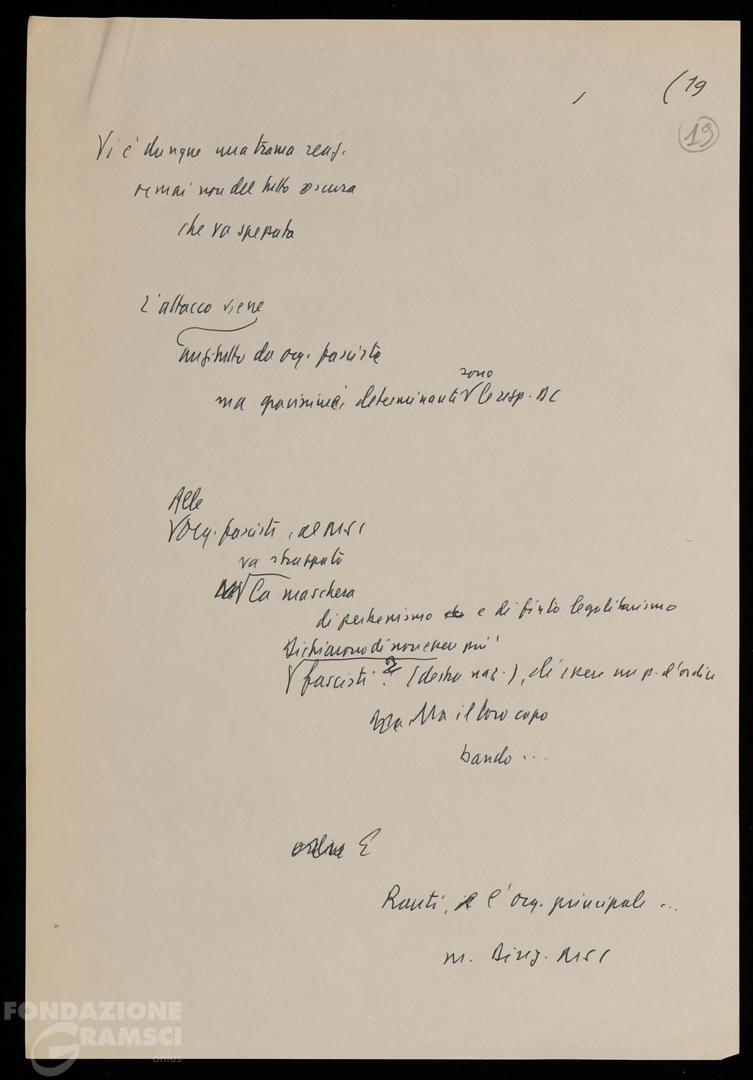 (19
19
Vi è dunque una trama reaz.
ormai non del tutto oscura
che va spezzata
L'attacco viene
anzitutto da org. fasciste
sono
ma gravissime, determinanti √ le resp. DC
Alle
√ Org. fasciste, al MSI
va strappata
√ La maschera
di perbenismo e di finto legalitarismo
Dichiarano di non essere più
√ fascisti? (destra naz.), di essere un p. d'ordine
Ma il loro capo
bando ...
E
Rauti, l'org. principale ...
m. Direz. MSI
FONDAZIONE
GRAMSCI
onlus